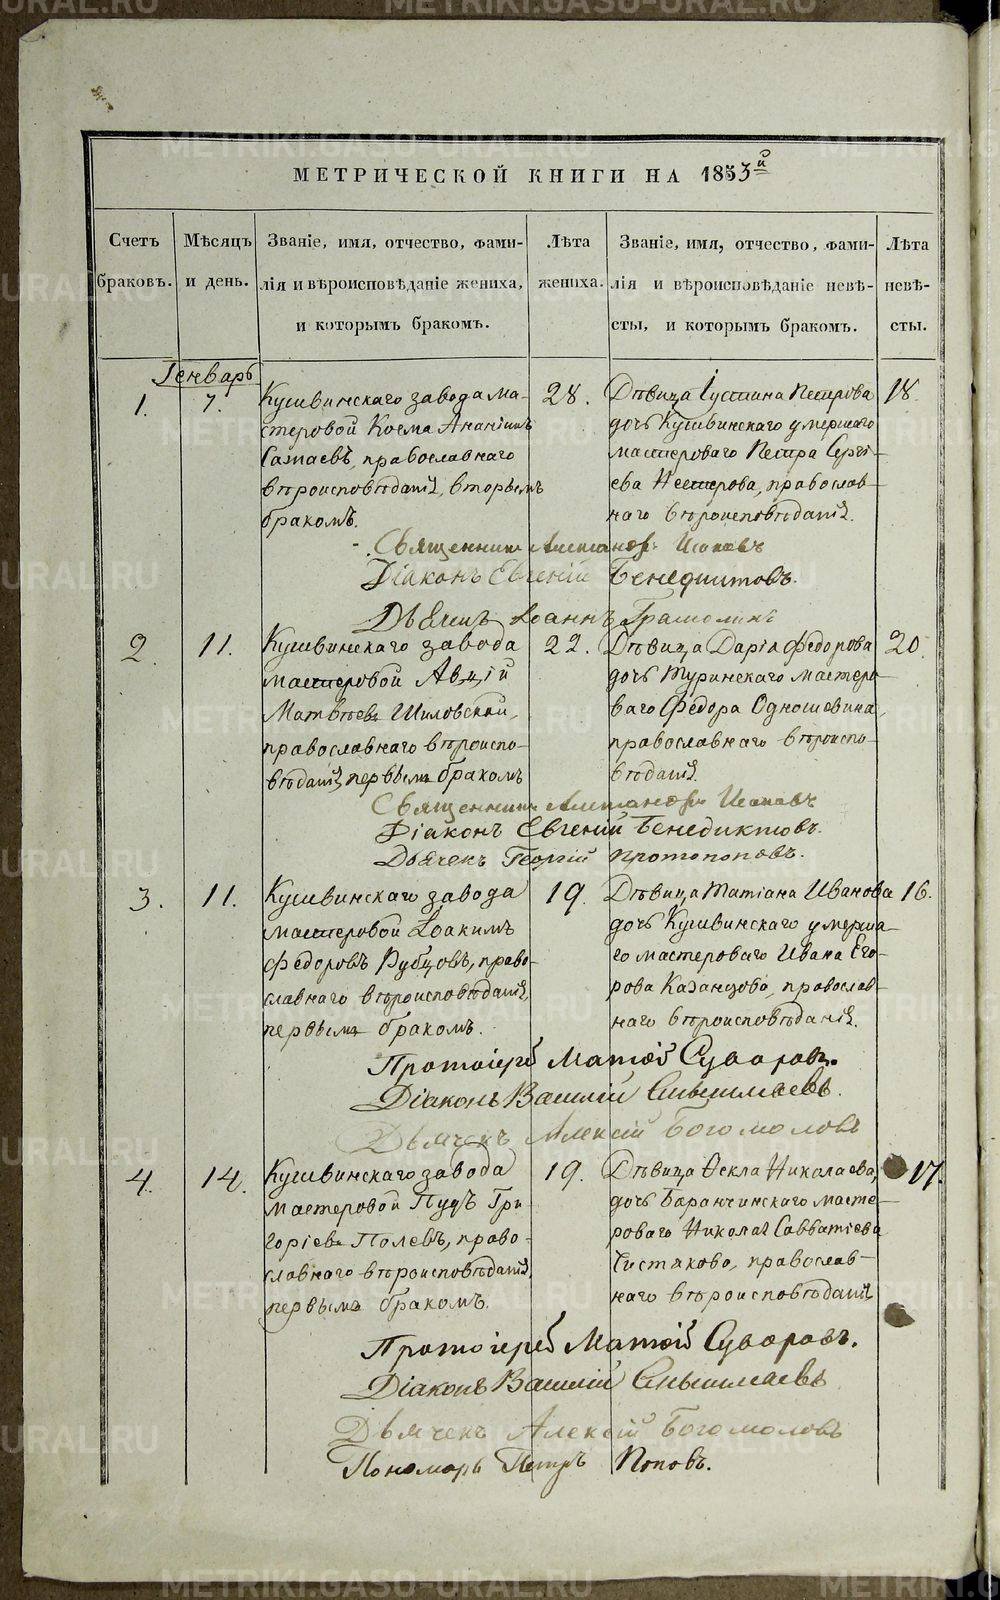 МЕТРИЧЕСКОЙ КНИГИ НА 1853й
Счетъ браковъ.
Мѣсяцъ и день.
Званіе, имя, отчество, фами-
лія и вѣроисповѣданіе жениха,
и которымъ бракомъ.
Лѣта жениха.
Званіе, имя, отчество, фами-
лія и вѣроисповѣданіе невѣ-
сты, и которымъ бракомъ.
Лѣта невѣ-
сты.
Генварь
1.
7.
Кушвинскаго завода ма-
стеровой Косма Ананіинъ
православнаго
вѣроисповѣданія, вторымъ
бракомъ.
28.
Дѣвица Іустина Петрова
дочь Кушвинскаго умершаго
мастероваго Петра Сергі-
ева Нестерова, православ-
наго вѣроисповѣданія.
18.
Священникъ Александръ
Діаконъ Евгеній Бенедиктовъ.
Дьячекъ Іоаннъ
2.
11.
Кушвинскаго завода
мастеровой
Матвѣевъ Шиловской,
православнаго вѣроиспо-
вѣданія первымъ бракомъ
22.
Дѣвица Дарія Федорова
дочь Туринскаго мастеро-
ваго Федора Одношевина,
православнаго вѣроиспо-
вѣданія.
20.
Священникъ Александръ
Діаконъ Евгеній Бенедиктовъ.
Дьячекъ Георгій Протопоповъ.
3.
11.
Кушвинскаго завода
мастеровой Іоакимъ
Федоровъ Рубцовъ, право-
славнаго вѣроисповѣданія,
первымъ бракомъ.
19.
Дѣвица Татіана Иванова
дочь Кушвинскаго умерша-
го мастероваго Ивана Его-
рова Казанцова, православ-
наго вѣроисповѣданія.
16.
Протоіерей Матѳій Суворовъ.
Діаконъ Василій
Дьячекъ Алексій Богомоловъ
4.
14.
Кушвинскаго завода
мастеровой Пудъ Гри
горіевъ Полевъ, право-
славнаго вѣроисповѣданія,
первымъ бракомъ.
19.
Дѣвица Ѳекла Николаева,
дочь Баранчинскаго масте-
роваго Николая Савватіева
Чистякова, православ-
наго вѣроисповѣданія
17.
Протоіерей Матѳій Суворовъ.
Діаконъ Василій
Дьячекъ Алексій Богомоловъ
Пономарь Петръ Поповъ.
METRIKI.GASO-URAL.RU